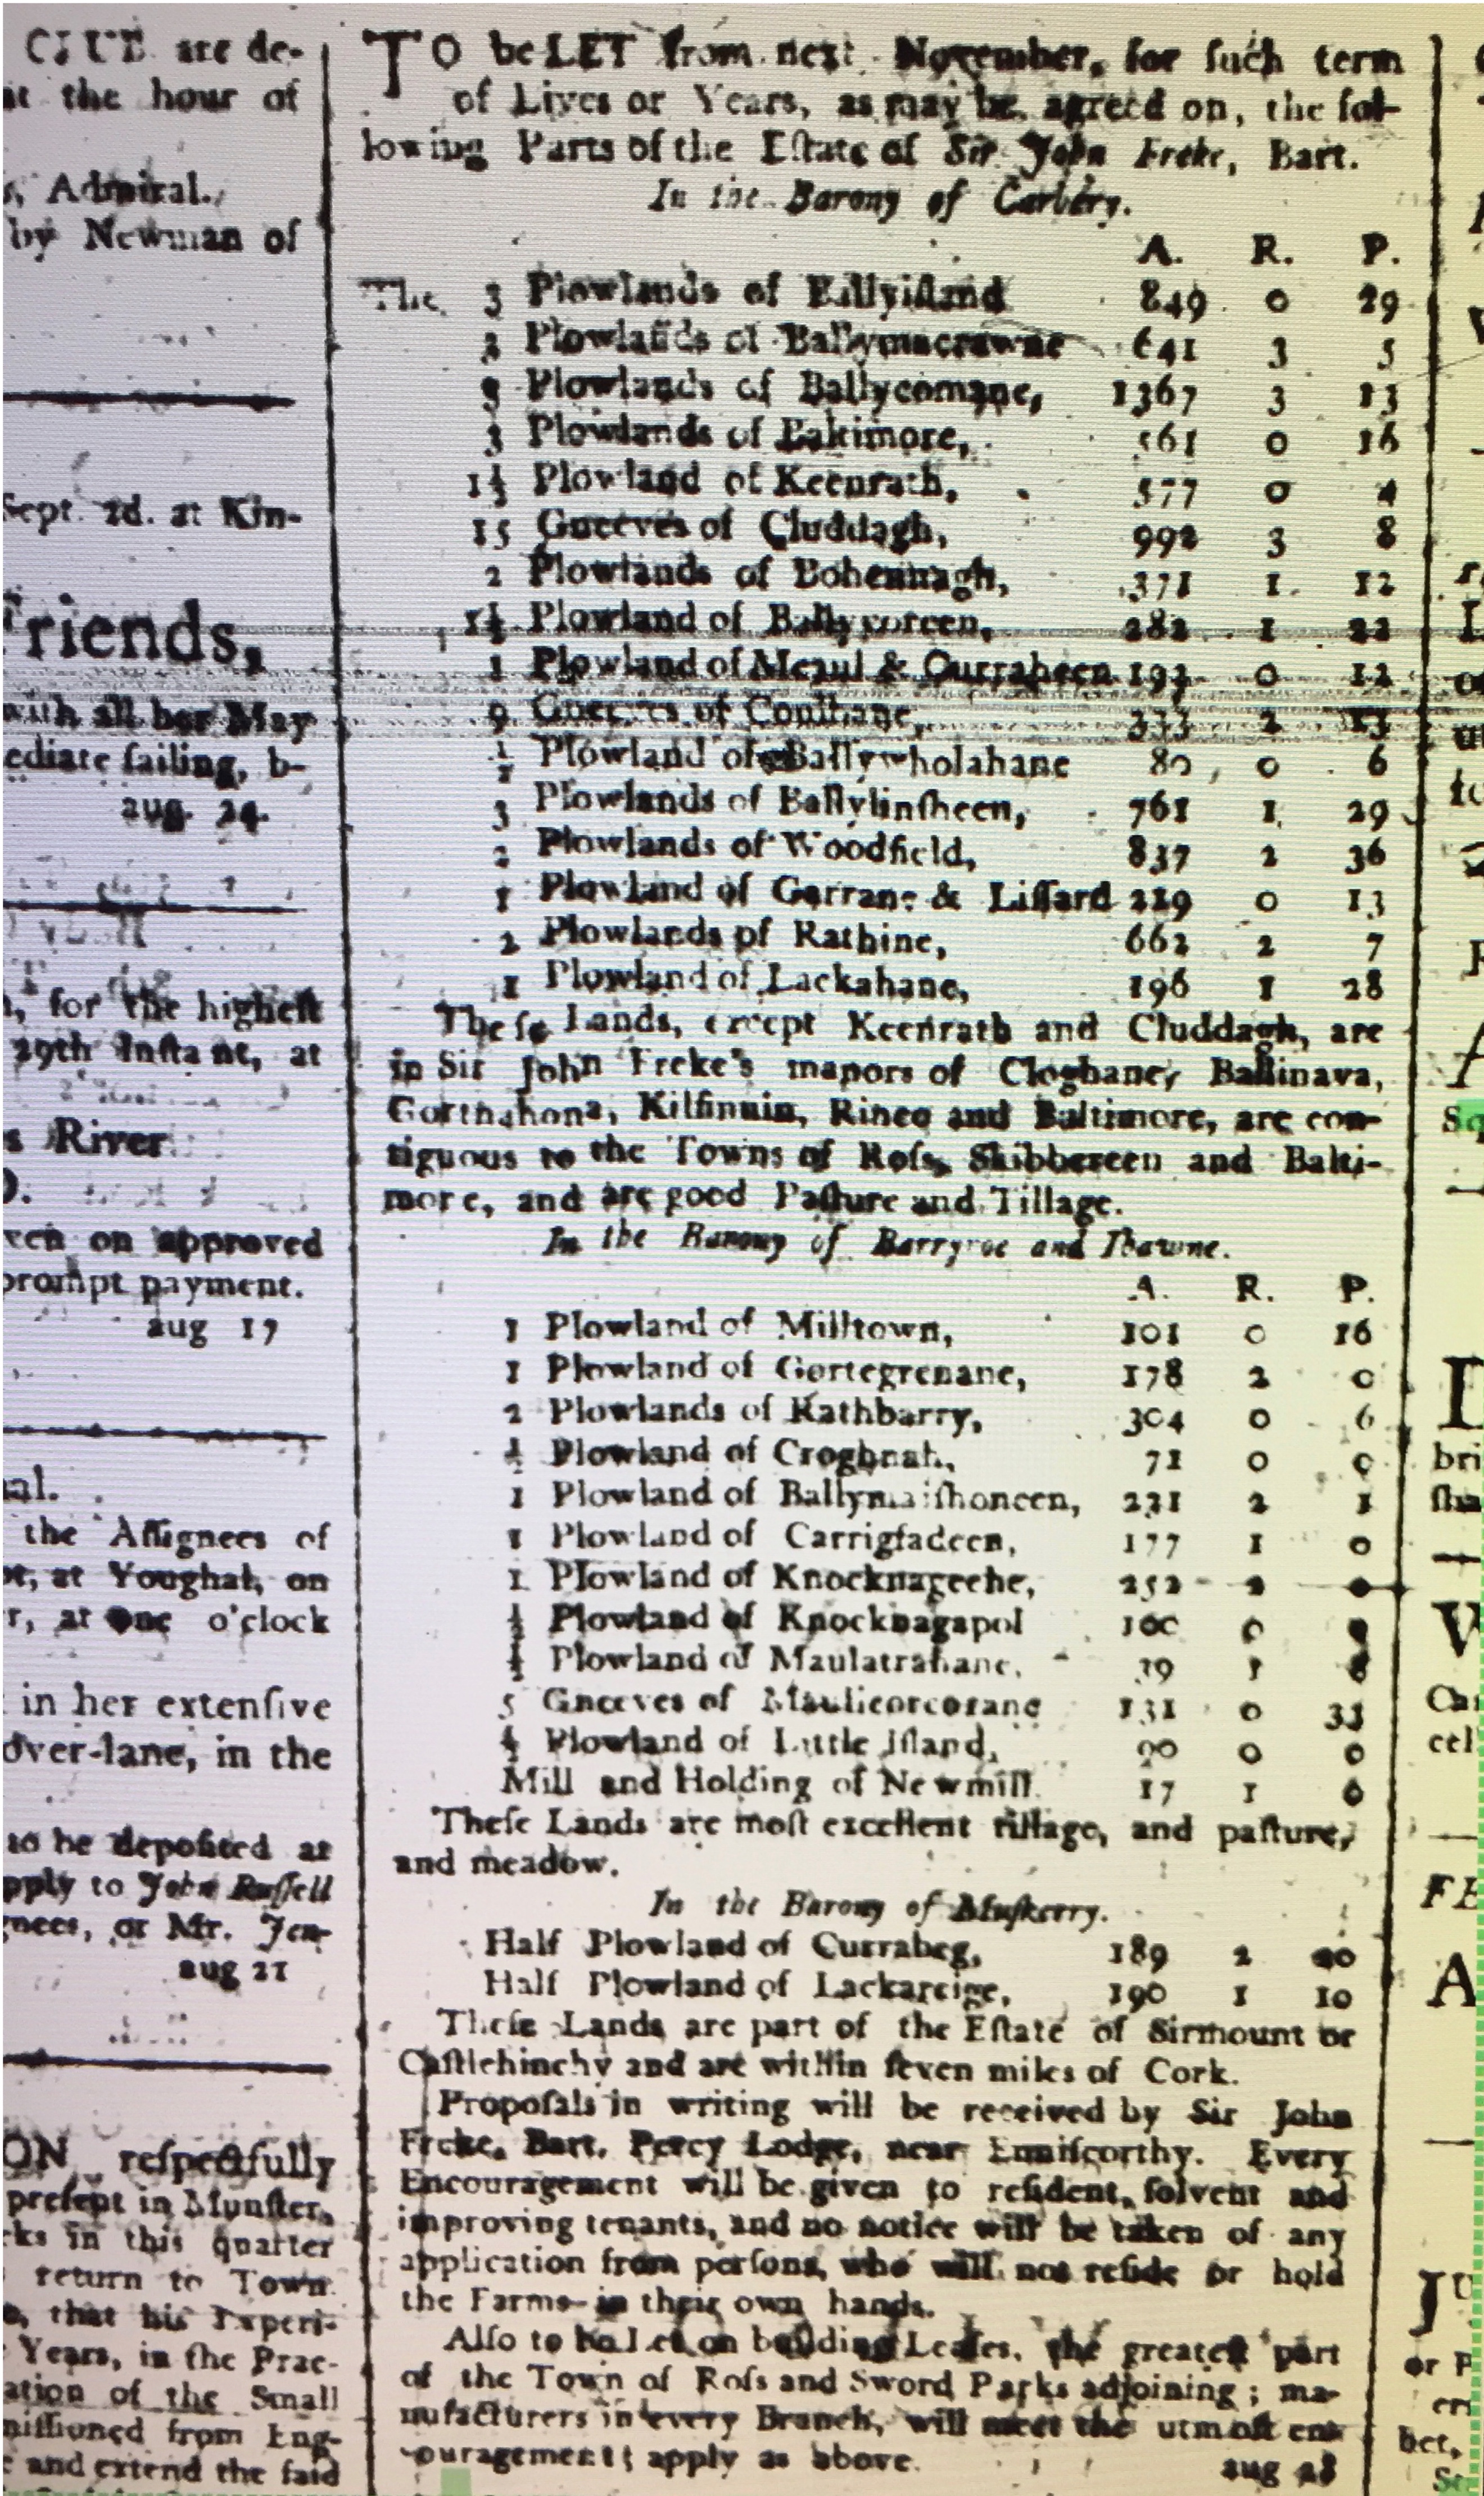 CLUB are de-
at the hour of
Admiral.
by Newman of
Sept. 2d. at Kin-
Friends,
with all her May
ediate ſailing, b-
aug. 24.
for the higheſt
29th Inſtant, at
s River
ven on approved
prompt payment.
aug 17
al.
the Aſſignees of
at Youghal, on
r, at one o'clock
in her extenſive
over-lane, in the
to be depoſited at
pply to John Ruſſell
gnees, or Mr. Jen-
aug 21
ON reſpectfully
preſent in Munſter,
ks in this quarter
return to Town.
that his Experi-
Years, in the Prac-
ation of the Small
miſſioned from Eng-
and extend the ſaid
TO be LET from next November, for ſuch term
of Lives or Years, as may be agreed on, the fol-
lowing Parts of the Eſtate of Sir John Freke, Bart.
In the Barony of Carbery.
A. R. P.
The 3 Plowlands of Ballyiſland 849 0 29
2 Plowlands of Ballymacrawne 641 3 5
9 Plowlands of Ballycomane, 1367 3 13
3 Plowlands of Baltimore, 561 0 16
1½ Plowland of Keenrath, 577 0 4
15 Gneeves of Cluddagh, 992 3 8
2 Plowlands of Bohennagh, 371 1 12
1½ Plowland of 282 1 22
1 Plowland of Meaul & Curraheen 193 0 12
9 Gneeves of 333 2 13
½ Plowland of Ballywholahane 80 0 6
3 Plowlands of Ballylinſheen, 761 1 29
2 Plowlands of Woodfield, 837 2 36
1 Plowland of Garrane & Liſſard 219 0 13
2 Plowlands of Rathine, 662 2 7
1 Plowland of Lackahane, 196 1 28
Theſe Lands, except Keenrath and Cluddagh, are
in Sir John Freke's manors of Cloghane, Ballinava,
Gortnahona, Kilfinnin, Rineo and Baltimore, are con-
tiguous to the Towns of Roſs, Skibbereen and Balti-
more, and are good Paſture and Tillage.
In the Barony of Barryroe and Ibawne.
A. R. P.
1 Plowland of Milltown, 101 0 16
1 Plowland of Gortegrenane, 178 2 0
2 Plowlands of Rathbarry, 304 0 6
½ Plowland of Croghnah, 71 0 0
1 Plowland of 231 2 1
1 Plowland of Carrigfadeen, 177 1 0
1 Plowland of Knocknageehe, 252 2
½ Plowland of Knocknagapol 100 0
½ Plowland of Maulatrahane, 39 1
5 Gneeves of Maulicorcorane 131 0 33
½ Plowland of Little Iſland, 90 0 0
Mill and Holding of Newmill 17 1 0
Theſe Lands are moſt excellent tillage, and paſture,
and meadow.
In the Barony of Muſkerry.
Half Plowland of Currabeg, 189 2 20
Half Plowland of Lackareige, 190 1 10
Theſe Lands are part of the Eſtate of Sirmount or
Caſtlehinchy and are within ſeven miles of Cork.
Propoſals in writing will be received by Sir John
Freke, Bart. Percy Lodge, near Enniſcorthy. Every
Encouragement will be given to reſident, ſolvent and
improving tenants, and no notice will be taken of any
application from perſons, who will not reſide or hold
the Farms in their own hands.
Alſo to be Let on building Leaſes, the greateſt part
of the Town of Roſs and Sword Parks adjoining; ma-
nufacturers in every Branch, will meet the utmoſt en-
couragement; apply as above. aug 28